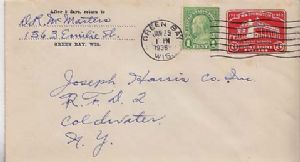 After 5 days, return to
O.R. McMasters
1563 Emilie St.
GREEN BAY, WIS.
GREEN BAY
JAN 23
1 PM
1936
WIS.
1 CENT 1
Joseph Harris Co. Inc.
R.F.D. 2
Coldwater
N.Y.